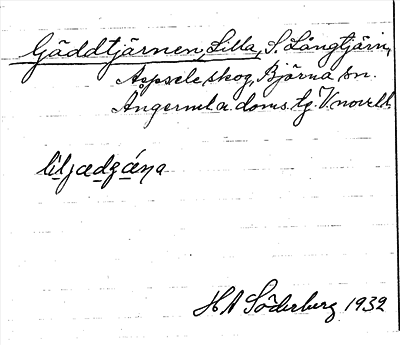 Gäddtjärnen, Lilla, S. Långtjärn,
Aspsele skog, Björna sn.
Ångerml a. doms. tj. V norrl.
liljædgǽŋa
H A Söderberg 1932